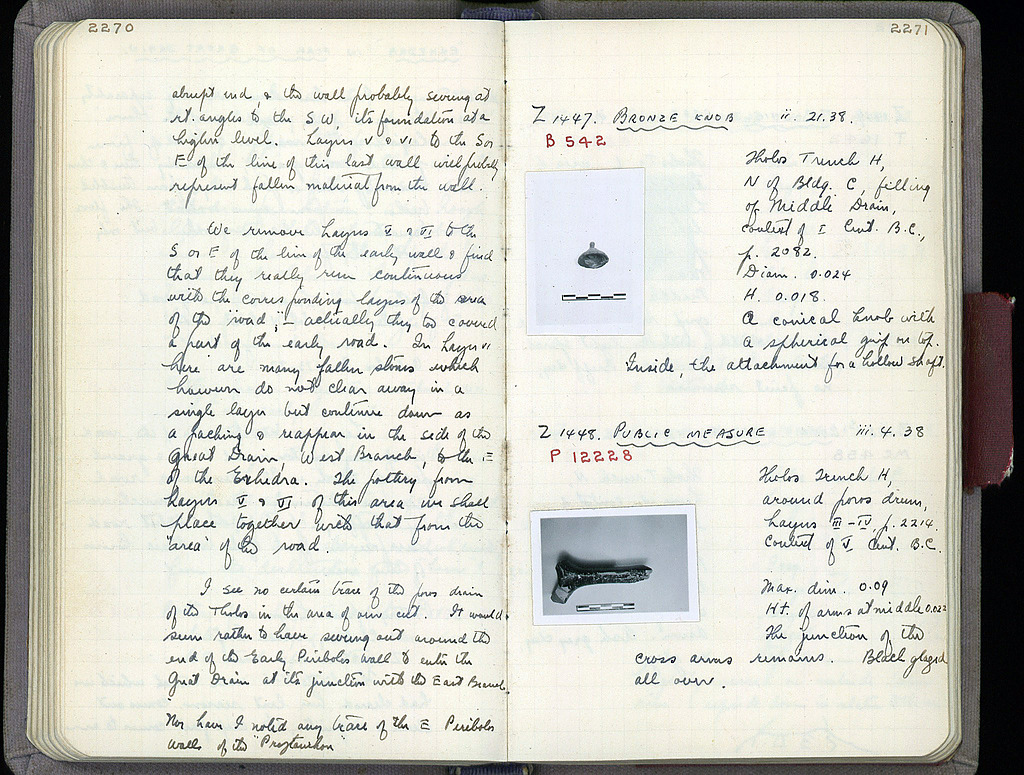 2270
abrupt end, & the wall probably swung at
rt. angles to the S W, its foundation at a
higher level. Layers V & VI to the S or
E of the line of this last wall will probably
represent fallen material from the wall.
We remove Layers V & VI to the
S or E of the line of the early wall & find
that they really run continuous
with the corresponding layers of the area
of the 'road,' – actually they too covered
a part of the early road. In Layer VI
here are many fallen stones which
however do not clear away in a
single layer but continue down as
a packing & reappear in the side of the
Great Drain, West Branch, to the E
of the Exhedra. The pottery from
Layers V & VI of this area we shall
place together with that from the
'area' of the road.
I see no certain trace of the poros drain
of the Tholos in the area of our cut. It would
seem rather to have swung out around the
end of the Early Peribolos wall to enter the
Great Drain at its junction with the East Branch.
Nor have I noted any trace of the E Peribolos
walls of the "Prytaneikon"
2271
Z 1447. BRONZE KNOB ii. 21. 38.
B 542
Tholos Trench H,
N of Bldg. C, filling
of Middle Drain,
context of I Cent. B.C.,
p. 2082.
Diam. 0.024
H. 0.018.
A conical knob with
a spherical grip on top.
Inside, the attachment for a hollow shaft.
Z 1448. PUBLIC MEASURE iii. 4. 38
P 12228
Tholos Trench H,
around poros drum,
Layers III–IV, p. 2214.
Context of V Cent. B.C.
Max. dim. 0.09
Ht. of arms at middle 0.022
The junction of the
cross arms remains. Black glazed
all over.